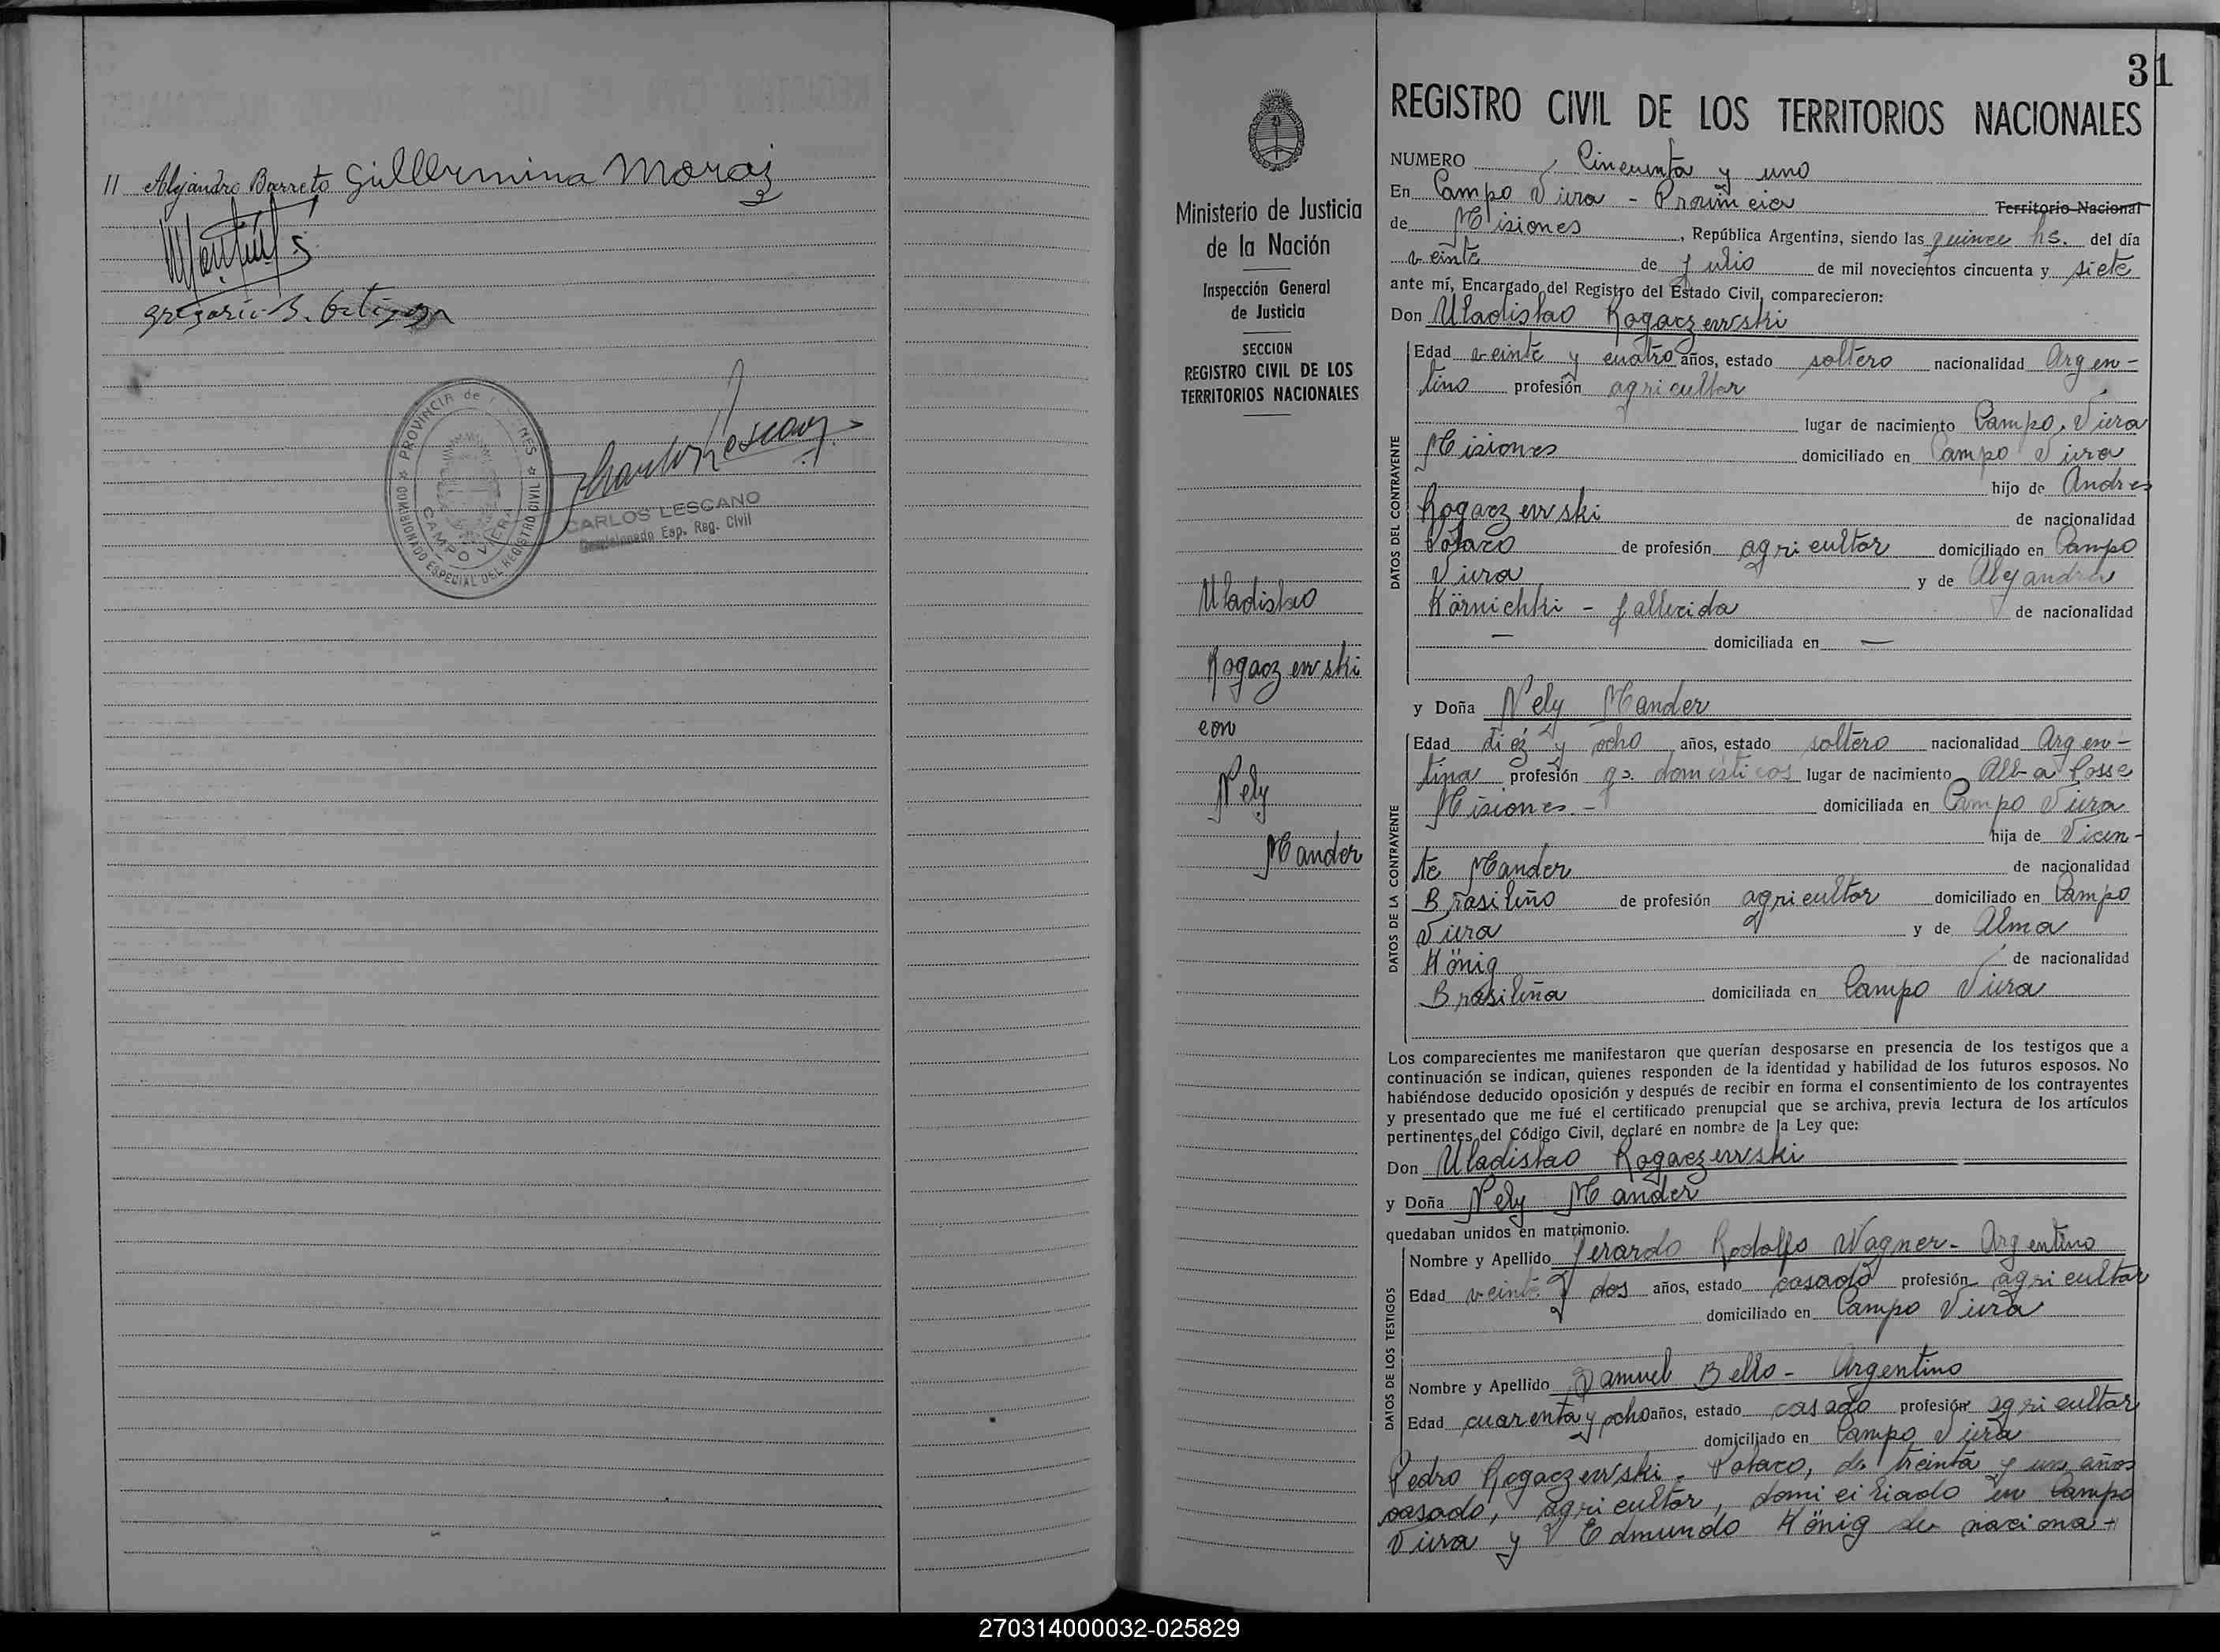 11 Alejandro Barreto Guillermina Moraiz
PROVINCIA de
CAMPO VIERA
COMISIONADO ESPECIAL DEL REGISTRO CIVIL
CARLOS LESCANO
Comisionado Esp. Reg. Civil
31
Ministerio de Justicia
de la Nación
Inspección General
de Justicia
SECCION
REGISTRO CIVIL DE LOS
TERRITORIOS NACIONALES
Uladislao
Rogaczewski
con
Nely
Mander
REGISTRO CIVIL DE LOS TERRITORIOS NACIONALES
NUMERO Cincuenta y uno
En Campo Viera - Provincia Territorio Nacional
de Misiones, República Argentina, siendo las quince hs. del día
veinte de julio de mil novecientos cincuenta y siete
ante mí, Encargado del Registro del Estado Civil, comparecieron:
Don Uladislao Rogaczewski
DATOS DEL CONTRAYENTE
Edad veinte y cuatro años, estado soltero nacionalidad Argen-
tino profesión agricultor
lugar de nacimiento Campo Viera
Misiones domiciliado en Campo Viera
hijo de Andres
Rogaczewski de nacionalidad
Polaco de profesión agricultor domiciliado en Campo
Viera y de Alejandra
Körnichki - fallecida de nacionalidad
— domiciliada en —
y Doña Nely Mander
DATOS DE LA CONTRAYENTE
Edad diez y ocho años, estado soltero nacionalidad Argen-
tina profesión q. domesticos lugar de nacimiento Alba Posse
Misiones.- domiciliada en Campo Viera
hija de Vicen-
te Mander de nacionalidad
Brasileño de profesión agricultor domiciliado en Campo
Viera y de Alma
König de nacionalidad
Brasileña domiciliada en Campo Viera
Los comparecientes me manifestaron que querían desposarse en presencia de los testigos que a
continuación se indican, quienes responden de la identidad y habilidad de los futuros esposos. No
habiéndose deducido oposición y después de recibir en forma el consentimiento de los contrayentes
y presentado que me fué el certificado prenupcial que se archiva, previa lectura de los artículos
pertinentes del Código Civil, declaré en nombre de la Ley que:
Don Uladislao Rogaczewski
y Doña Nely Mander
quedaban unidos en matrimonio.
DATOS DE LOS TESTIGOS
Nombre y Apellido Jerardo Rodolfo Wagner - Argentino
Edad veinte y dos años, estado casado profesión agricultor
domiciliado en Campo Viera
Nombre y Apellido Samuel Bello - Argentino
Edad cuarenta y ocho años, estado casado profesión agricultor
domiciliado en Campo Viera
Pedro Rogaczewski - Polaco, de treinta y un años
casado, agricultor, domiciliado en Campo
Viera y Edmundo König de naciona-
270314000032-025829